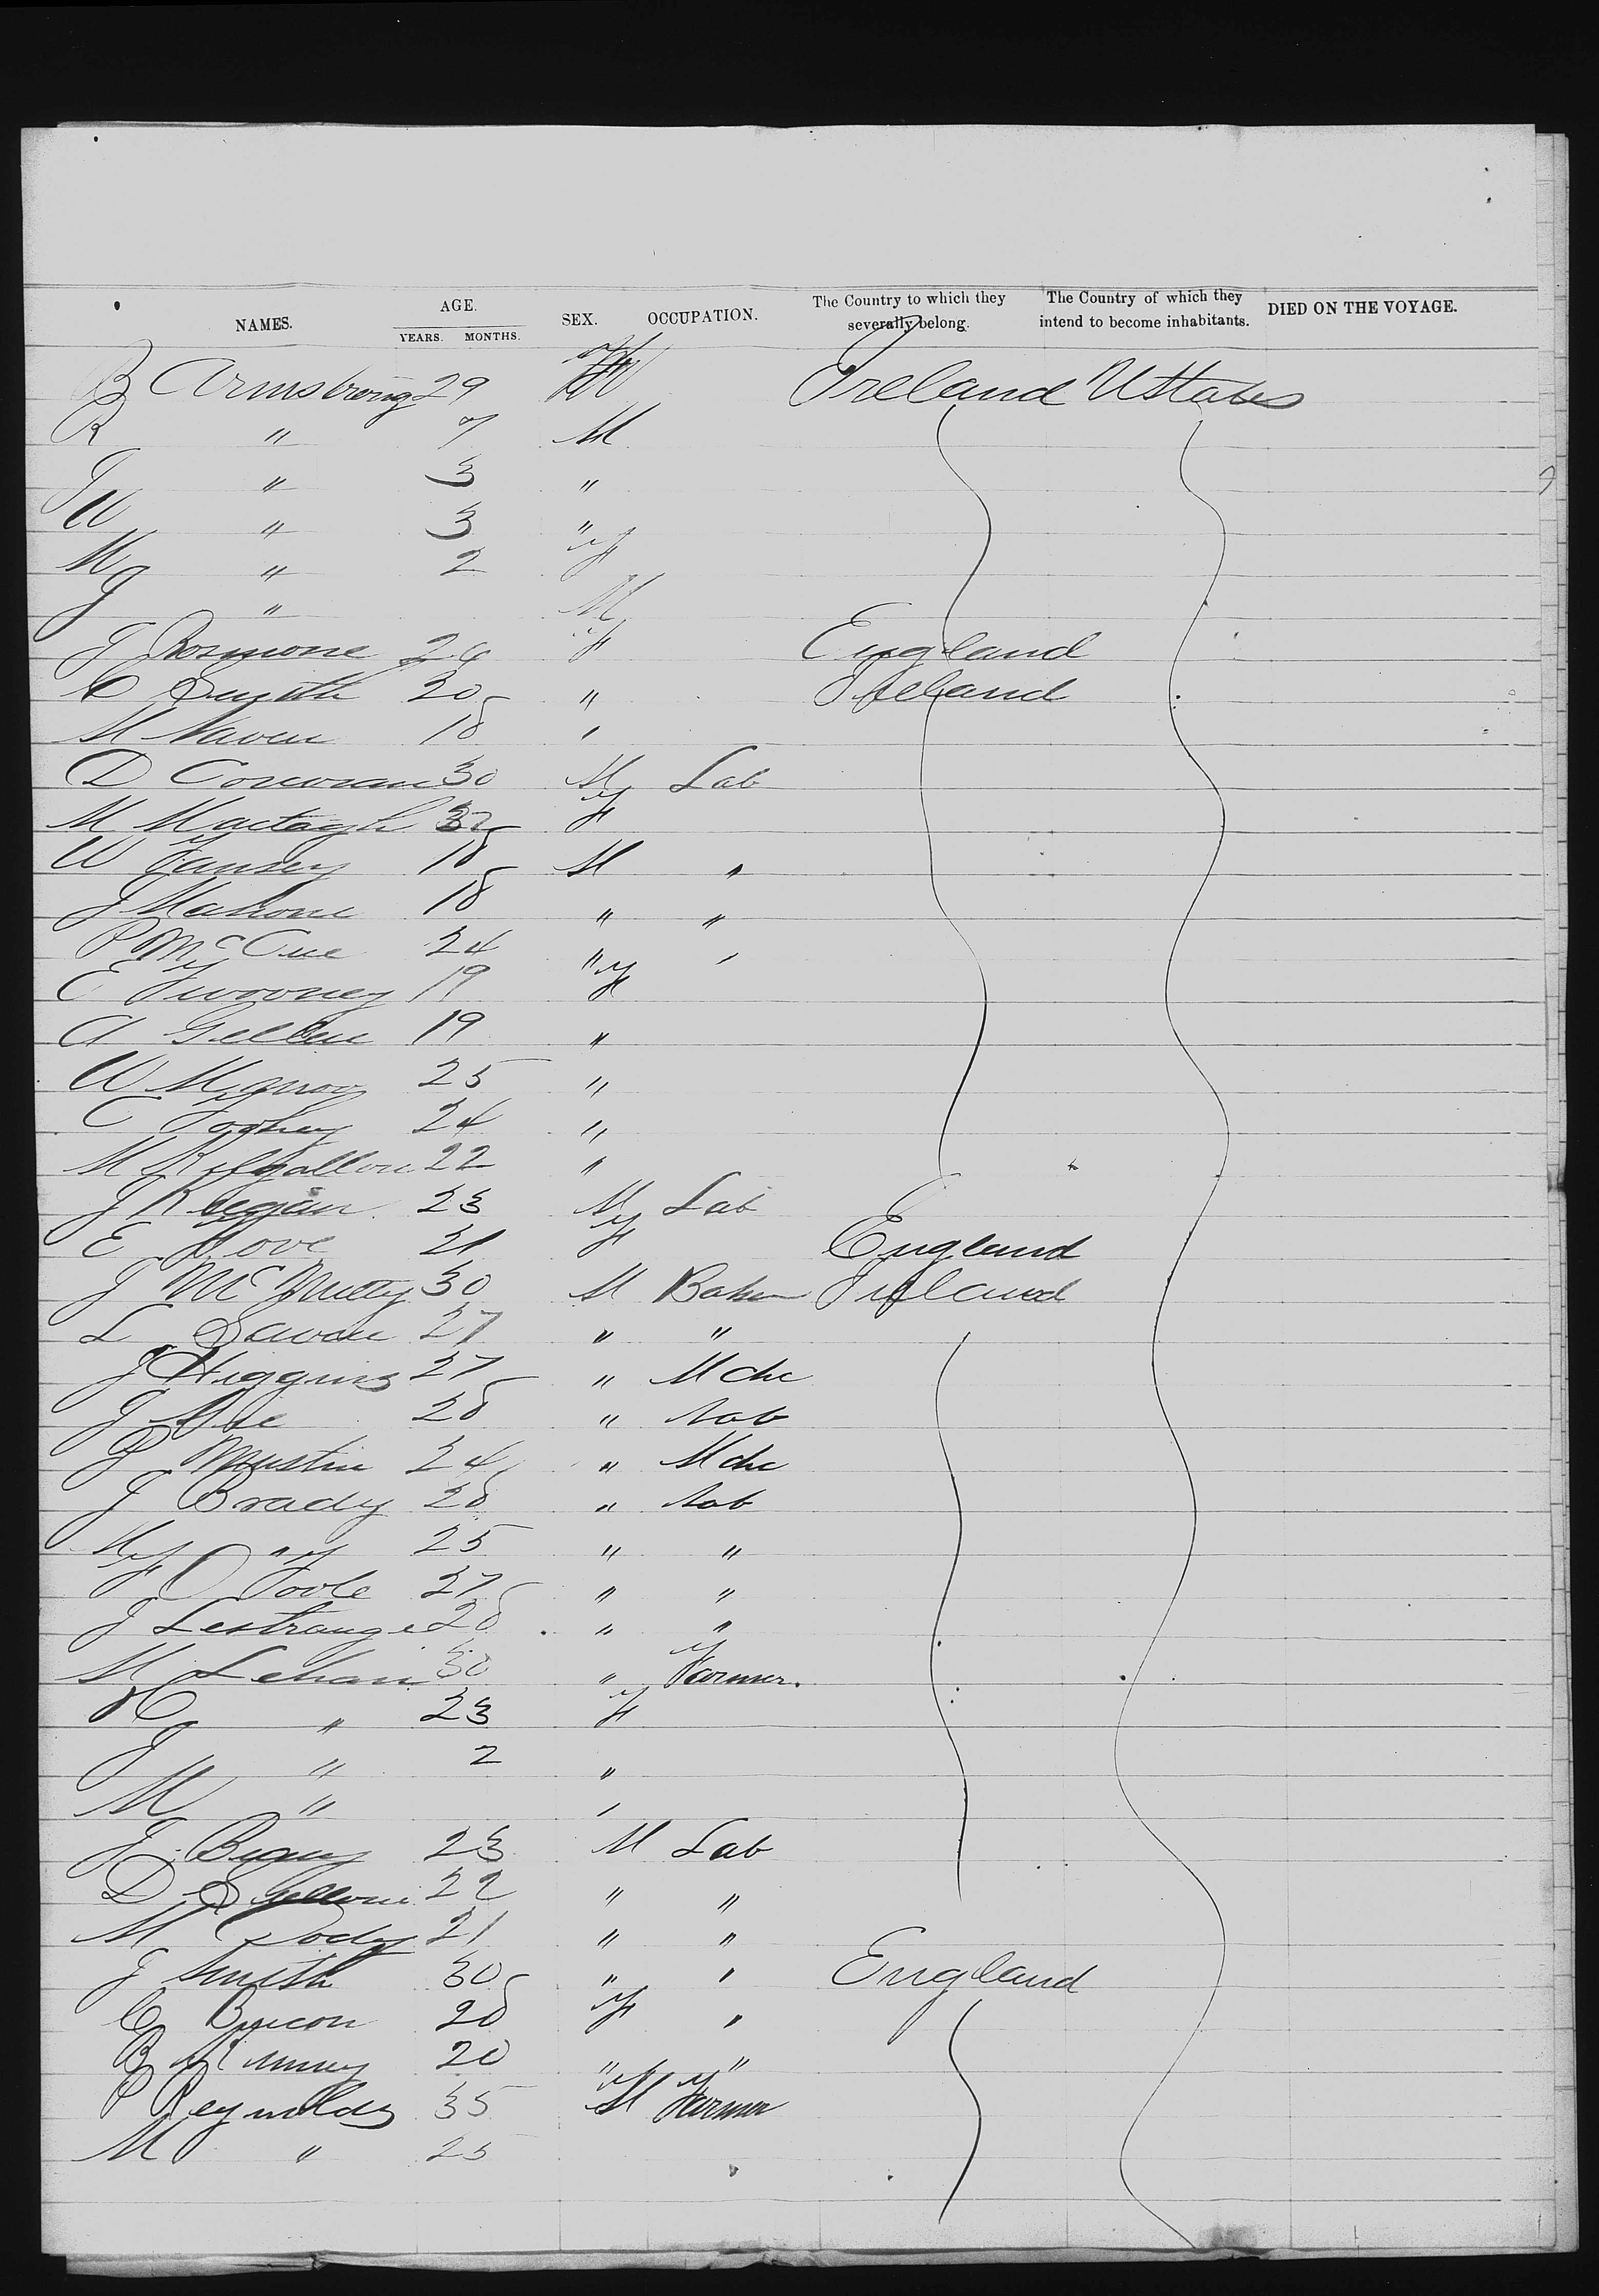 NAMES. AGE. YEARS. MONTHS. SEX. OCCUPATION. The Country to which they severally belong. The Country of which they intend to become inhabitants. DIED ON THE VOYAGE.
B Armstrong 29 Ireland UStates
R " 7 M
J " 3 "
W " 3 "
M " 2 F
J " M
J 24 F England
C Smyth 20 " Ireland
M Naven 18 "
D Corcoran 30 M Lab
M Mactagh 32 F
W Tansey 18 M "
J Mahone 18 " "
P McCue 24 " "
E Twooney 19 F
A Gillen 19 "
W 25 "
C Foghey 24 "
M Kilgallon 22 "
J Keegan 23 M Lab
E Hove 21 F England
J McNulty 30 M Baker Ireland
L 27 " "
J Higgins 27 " Mchc
J 28 " Lab
P Mustin 24 " Mchc
J Brady 28 " Lab
M " 25 " "
F O Toole 27 " "
J Lestrange 28 " "
M Lehan 30 " Farmer.
H " 23 F
J " 2 "
M " "
J 23 M Lab
D 22 " "
M Dody 21 " "
J Smith 30 " " England
C 28 F "
B 20 " "
P Reynolds 35 M Farmer
M " 25